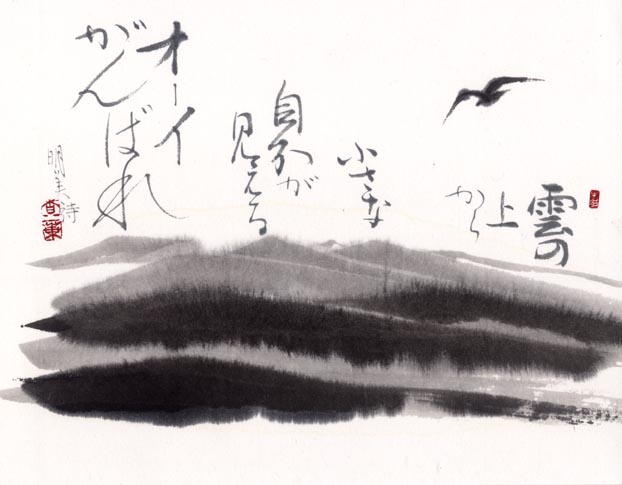 雲の
上
から
小さな
自分が
見える
オーイ
がんばれ
明美 詩